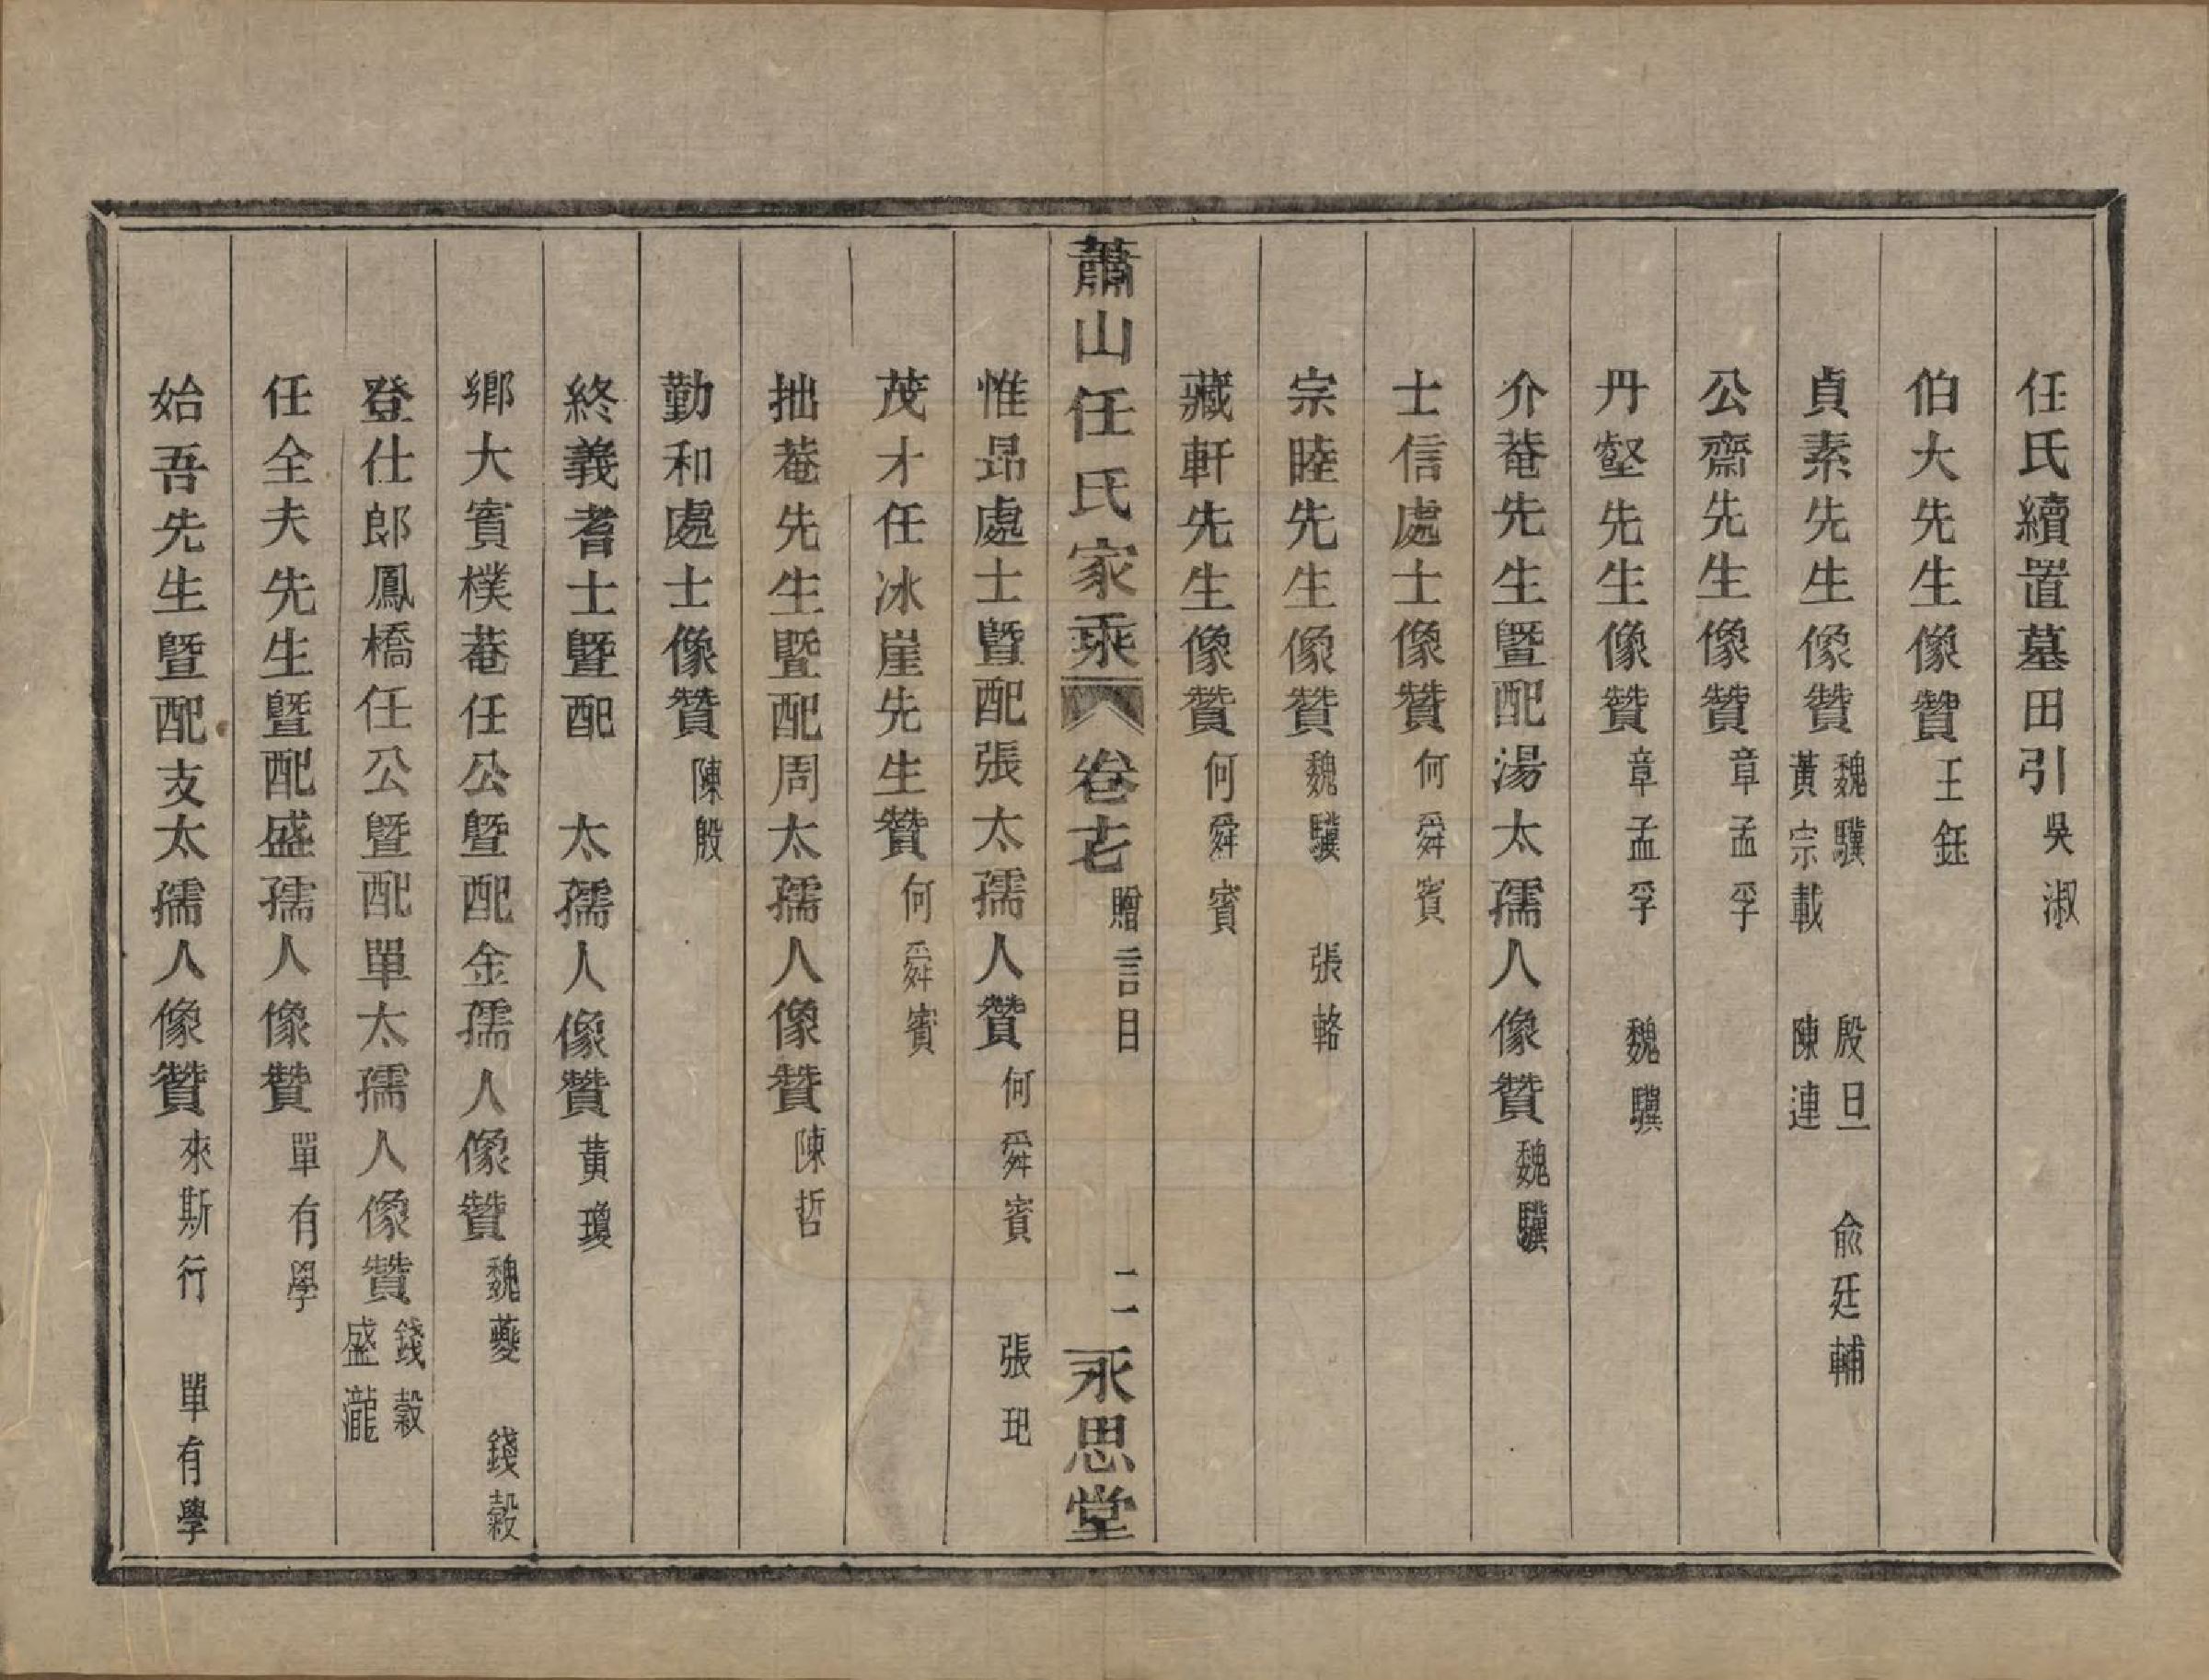 任氏續置墓田引吳淑
伯大先生像贊王鈺
貞素先生像贊魏驥 殷旦 俞廷輔
黃宗載 陳連
公齋先生像贊章孟孚
丹壑先生像贊章孟孚 魏驥
介菴先生曁配湯太孺人像贊魏驥
士信處士像贊何舜賓
宗睦先生像贊魏驥 張輅
藏軒先生像贊何舜賓
蕭山任氏家乘 卷十七 贈言目 二 永思堂
惟昂處士曁配張太孺人贊何舜賓 張玘
茂才任冰崖先生贊何舜賓
拙菴先生曁配周太孺人像贊陳哲
勤和處士像贊陳殷
終義耆士曁配 太孺人像贊黃瓊
鄉大賓樸菴任公曁配金孺人像贊魏夔 錢穀
登仕郎鳳橋任公曁配單太孺人像贊錢穀
盛瀧
任全夫先生曁配盛孺人像贊單有學
始吾先生曁配支太孺人像贊來斯行 單有學